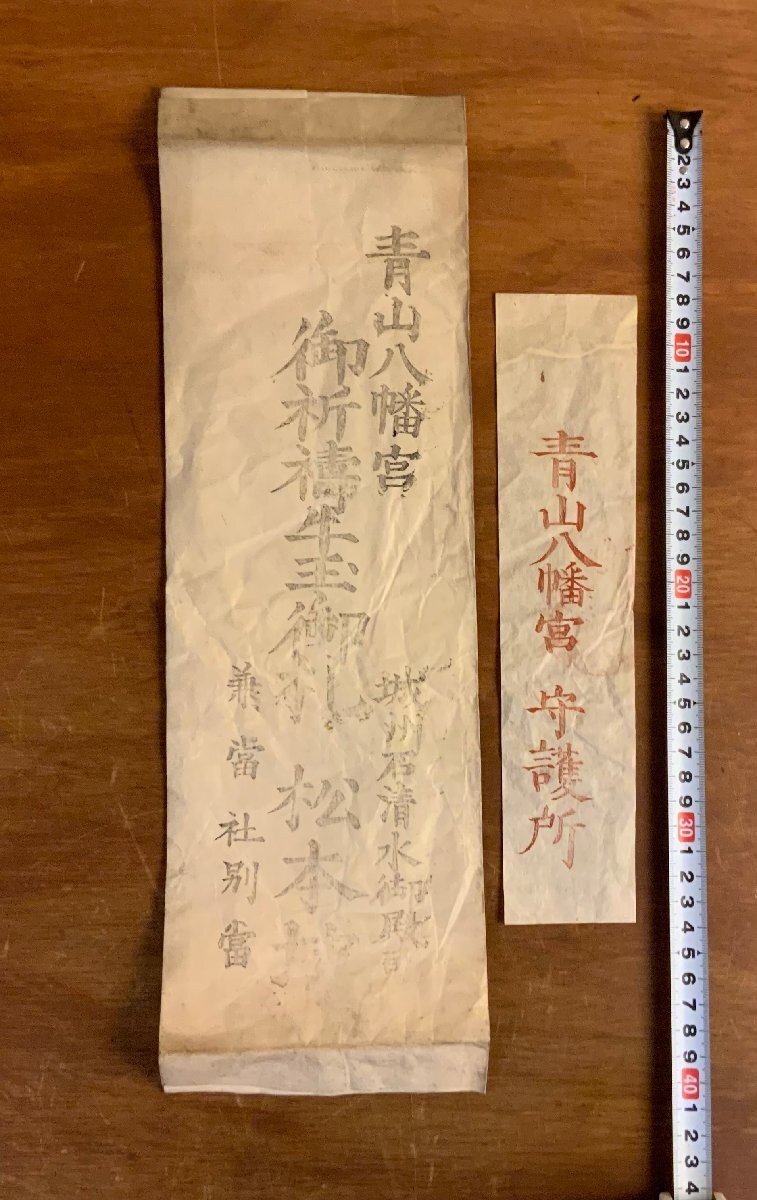 青山八幡宮
城州石清水御殿司
御祈禱牛玉御札 松本坊
兼當社別當
青山八幡宮 守護所
2 3 4 5 6 7 8 9 10 1 2 3 4 5 6 7 8 9 20 1 2 3 4 5 6 7 8 9 30 1 2 3 4 5 6 7 8 9 40 1 2 3 4